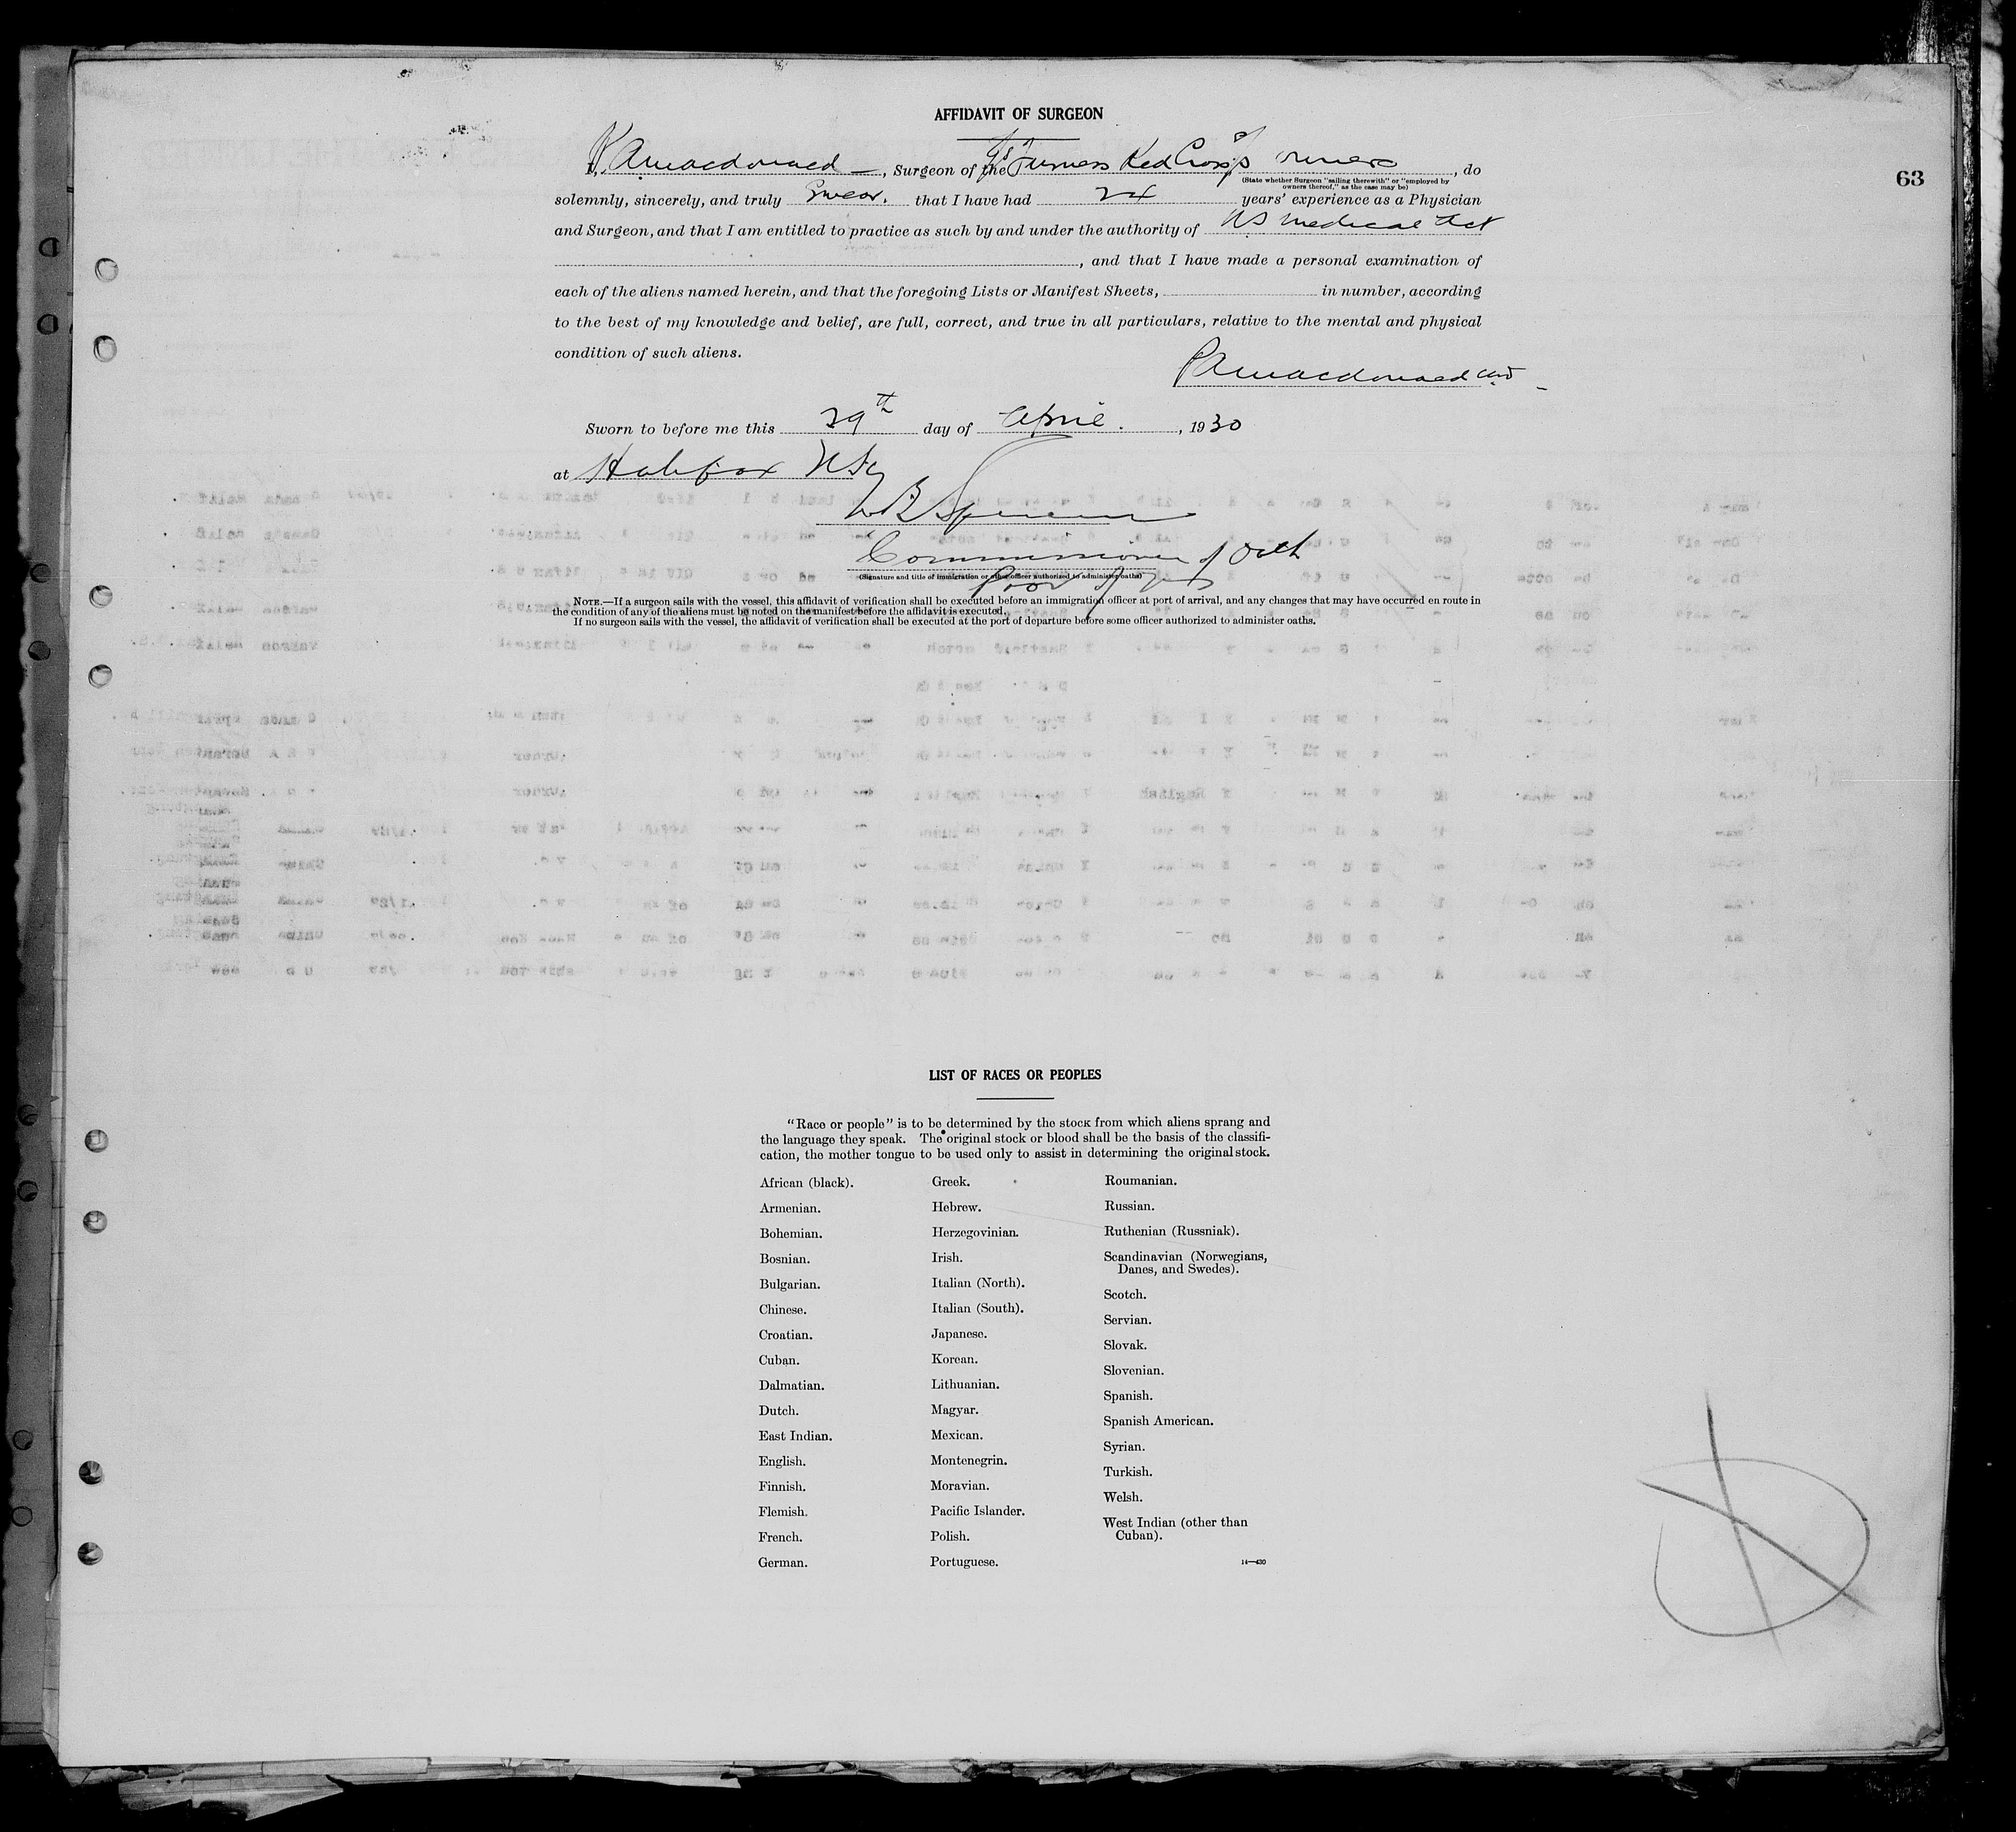 AFFIDAVIT OF SURGEON
63
I, PAMacdonald, Surgeon of the Furness Red Cross owners, do
(State whether Surgeon "sailing therewith" or "employed by owners thereof," as the case may be)
solemnly, sincerely, and truly Swear. that I have had 24 years' experience as a Physician
and Surgeon, and that I am entitled to practice as such by and under the authority of NS Medical Act
, and that I have made a personal examination of
each of the aliens named herein, and that the foregoing Lists or Manifest Sheets, in number, according
to the best of my knowledge and belief, are full, correct, and true in all particulars, relative to the mental and physical
condition of such aliens.
PAMacdonald MD
Sworn to before me this 29th day of April. , 1930
at Halifax NS
Commissioner of Oath
(Signature and title of immigration or other officer authorized to administer oaths)
NOTE.—If a surgeon sails with the vessel, this affidavit of verification shall be executed before an immigration officer at port of arrival, and any changes that may have occurred en route in
the condition of any of the aliens must be noted on the manifest before the affidavit is executed.
If no surgeon sails with the vessel, the affidavit of verification shall be executed at the port of departure before some officer authorized to administer oaths.
LIST OF RACES OR PEOPLES
"Race or people" is to be determined by the stock from which aliens sprang and
the language they speak. The original stock or blood shall be the basis of the classifi-
cation, the mother tongue to be used only to assist in determining the original stock.
African (black).
Armenian.
Bohemian.
Bosnian.
Bulgarian.
Chinese.
Croatian.
Cuban.
Dalmatian.
Dutch.
East Indian.
English.
Finnish.
Flemish.
French.
German.
Greek.
Hebrew.
Herzegovinian.
Irish.
Italian (North).
Italian (South).
Japanese.
Korean.
Lithuanian.
Magyar.
Mexican.
Montenegrin.
Moravian.
Pacific Islander.
Polish.
Portuguese.
Roumanian.
Russian.
Ruthenian (Russniak).
Scandinavian (Norwegians,
Danes, and Swedes).
Scotch.
Servian.
Slovak.
Slovenian.
Spanish.
Spanish American.
Syrian.
Turkish.
Welsh.
West Indian (other than
Cuban).
14—430